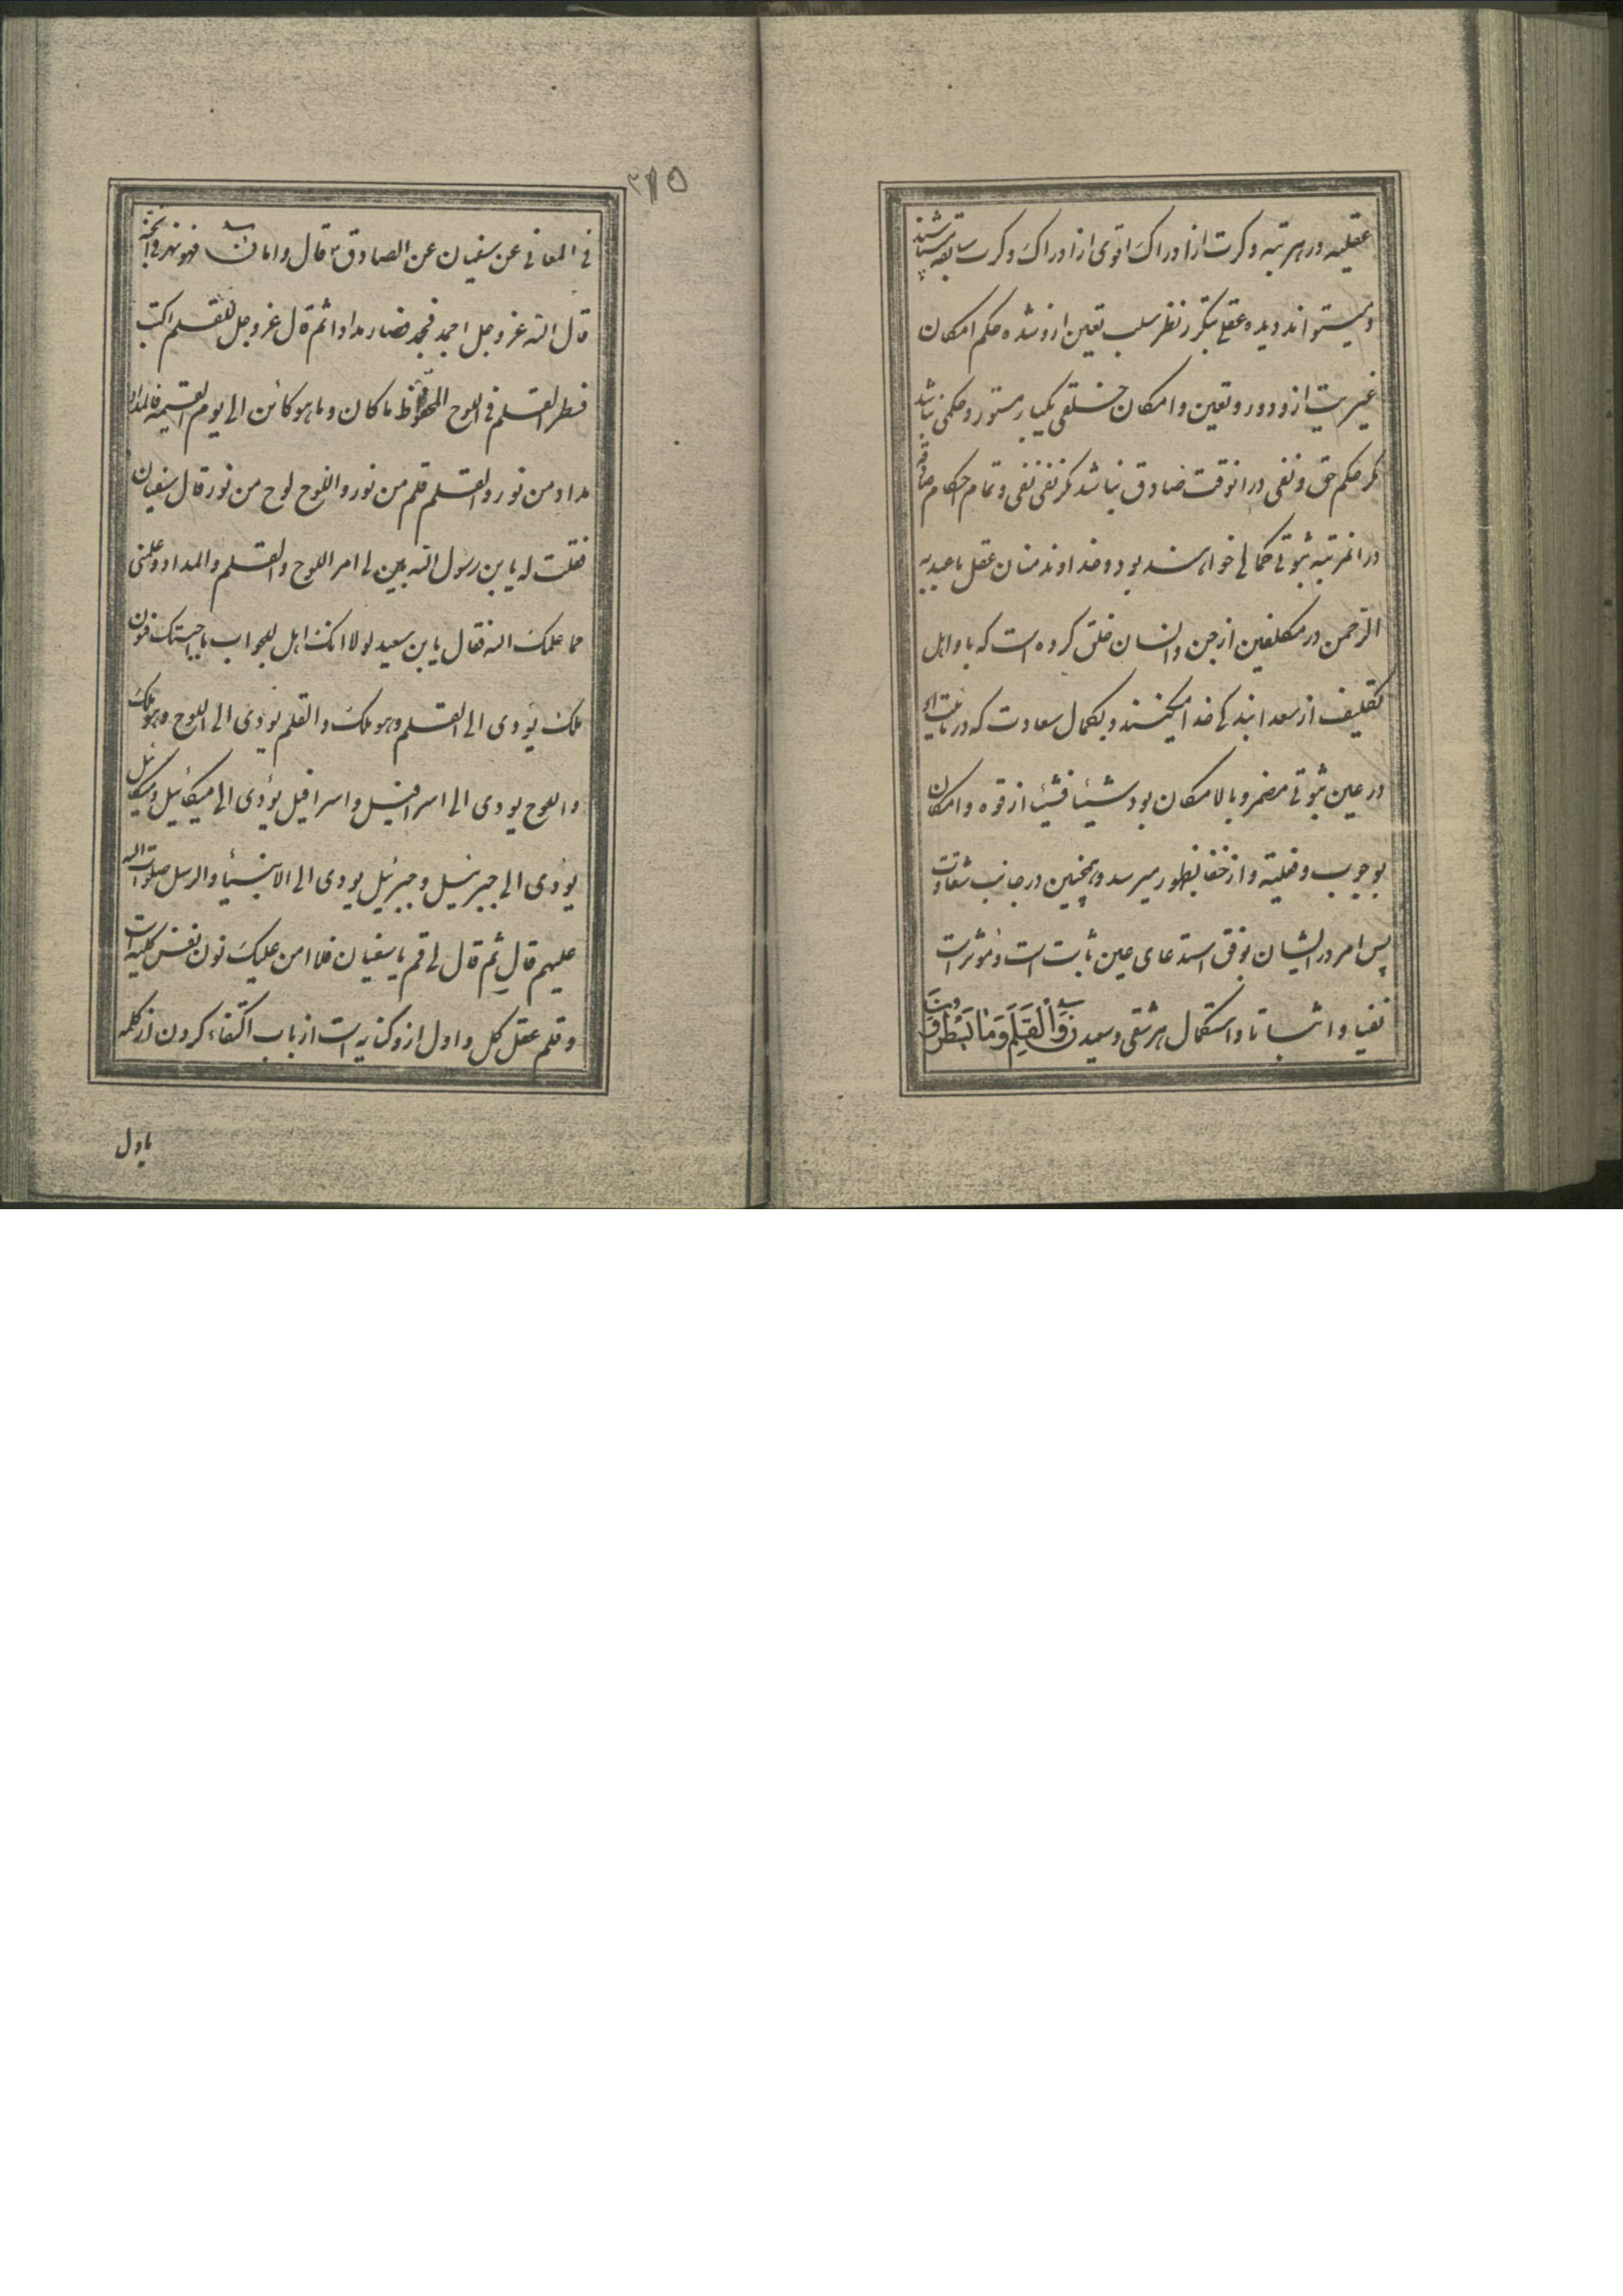 عقلیه در هر مرتبه و کرت از ادراک اقوی از ادراک و کرت سابقه
و میتواند دیده عقل بتکرر نظر سلب تعین ازو شده حکم امکان
غیریت ازو دور و تعین و امکان خلقی یکبار مستور و حکمی نباشد
مکر حکم حق و نفی در انوقت صادق نباشد مکر نفی نفی و تمام احکام صادقه
در انمرتبه ثبوتی کمالی خواهند بود و خداوند منان عقل ما عبد به
الرحمن در مکلفین از جن و انسان خلق کرده است که باو اهل
تکلیف از سعدا بندکی خدا میکنند و بکمال سعادت که در
در عین ثبوتی مضمر و بالامکان بود شیئا فشیئا از قوه و امکان
بوجوب و فعلیة و از خفا بظهور میرسد و همچنین در جانب شقاوت
پس امر در ایشان بوفق استدعای عین ثابت است و مؤثر است
نفیا و اثباتا و استکمال هر شقی و سعید ن وَالْقَلَمِ وَمَا يَسْطُرُونَ
٢١٥
فی المعانی عن سفیان عن الصادق ع قال و اما ن فهو نهر فی الجنة
قال الله عز و جل اجمد فجمد فصار مدادا ثم قال عز و جل للقلم اکتب
فسطر القلم فی اللوح المحفوظ ما کان و ما هو کائن الی یوم القیمه فالمداد
مداد من نور و القلم قلم من نور و اللوح لوح من نور قال سفیان
فقلت له یا بن رسول الله بین لی امر اللوح و القلم و المداد و علمنی
مما علمک الله فقال یا بن سعید لولا انک اهل للجواب ما اجبتک فنون
ملک یؤدی الی القلم و هو ملک و القلم یؤدی الی اللوح و هو ملک
و اللوح یودی الی اسرافیل و اسرافیل یؤدی الی میکائیل و میکائیل
یؤدی الی جبرئیل و جبرئیل یودی الی الانبیاء و الرسل صلوات الله
علیهم قال ثم قال لی قم یا سفیان فلا امن علیک نون نفس کلیه است
و قلم عقل کل و اول ازو کنایه است از باب اکتفاء کردن از کلمه
باول